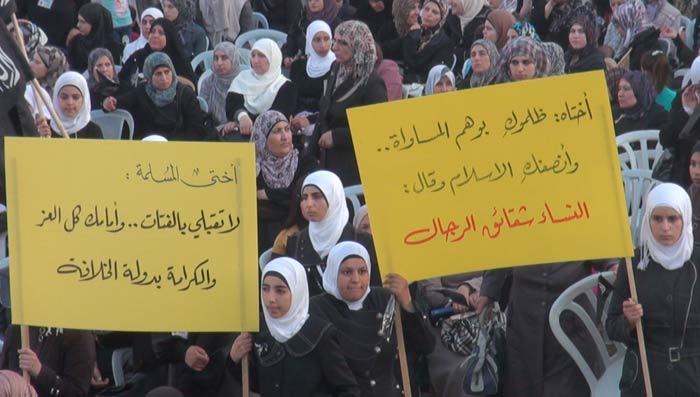 أختاه: ظلموكِ بوهم المساواة..
وأنصفكِ الاسلام وقال:
النساء شقائق الرجال
أختي المُسلمة:
لا تقبلي بالفتات..وأمامك كل العز
والكرامة بدولة الخلافة